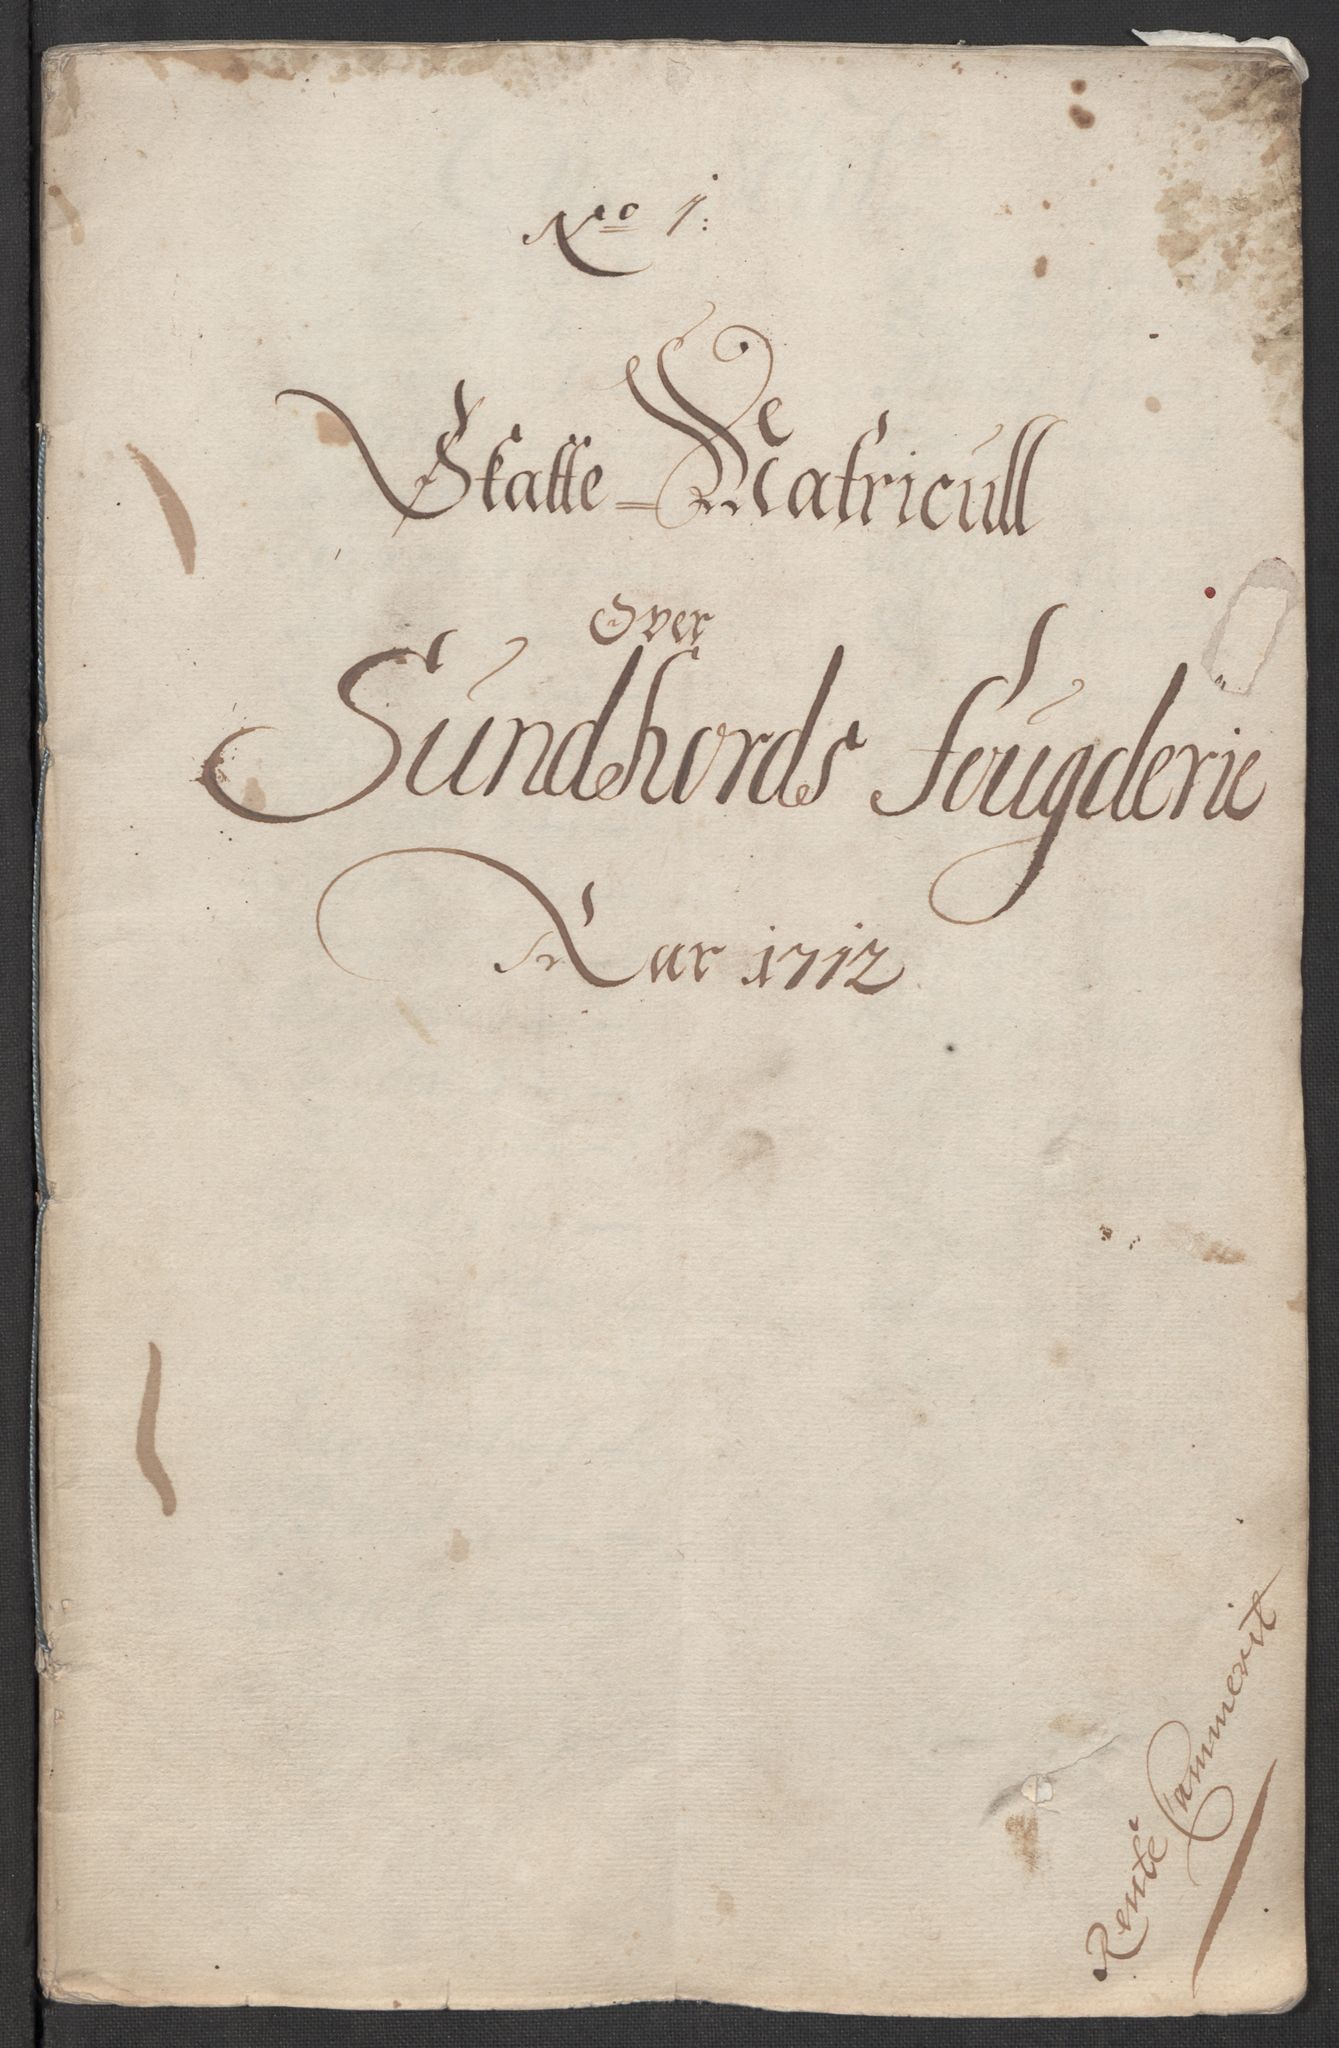 No 1:
Skatte=Matricull
Over
Sundhords Fougderie
Aar 1712
Rente Cammerit